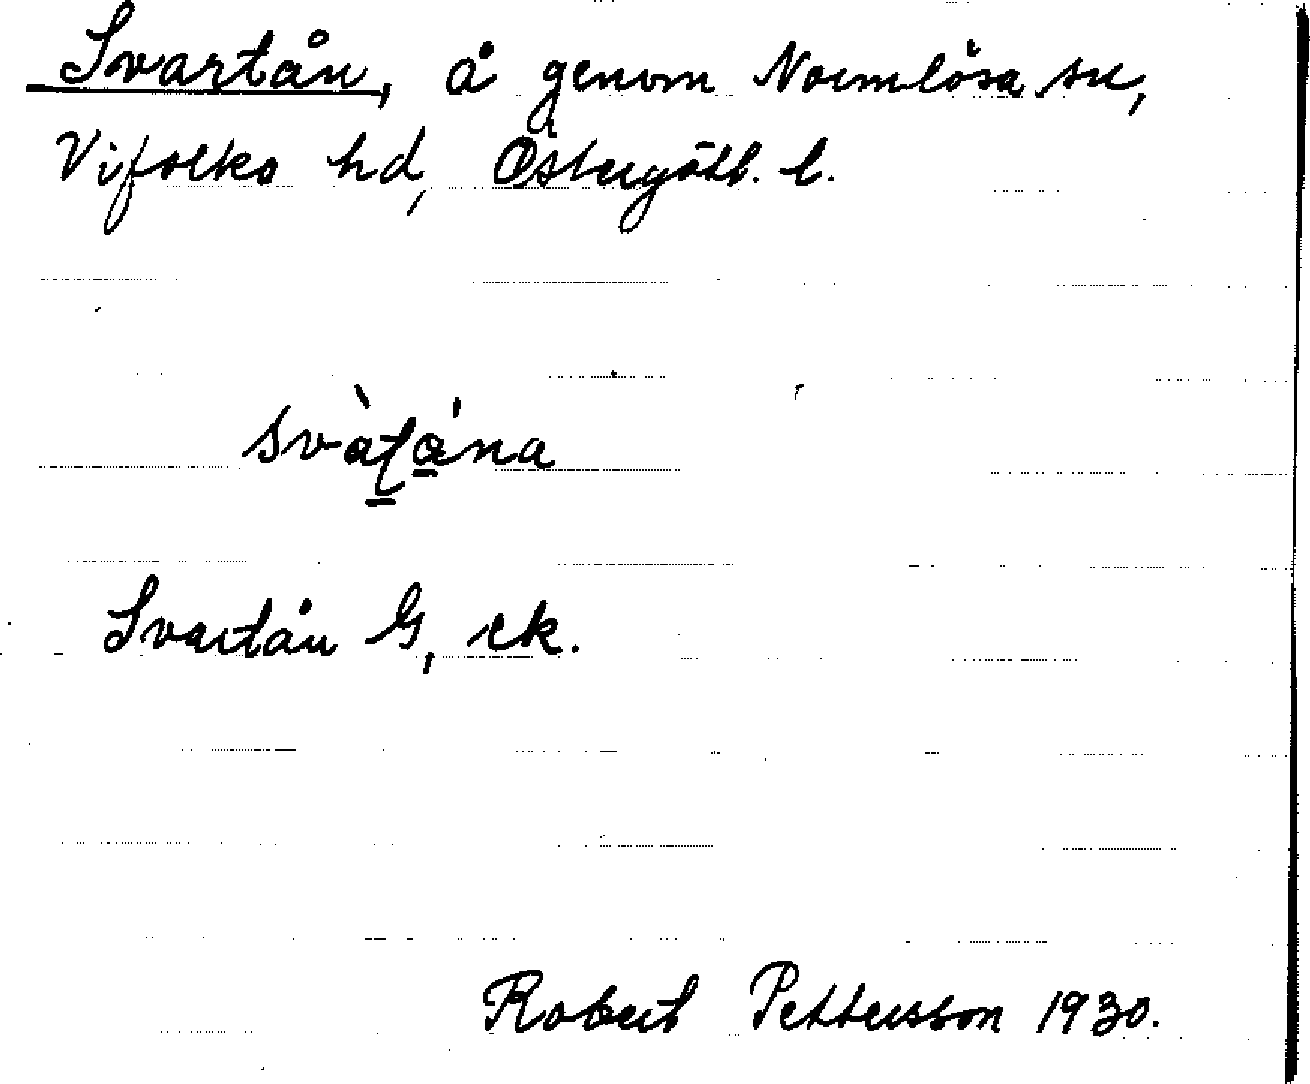 Svartån, å genom Normlösa sn,
Vifolka hd, Östergötl. l.
svàʈǻna
Svartån G, ek.
Robert Pettersson 1930.